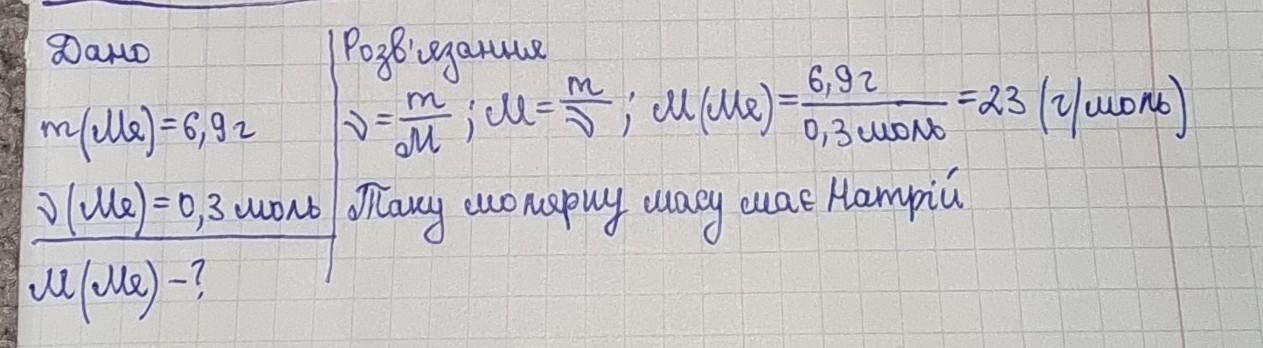 Дано
m(Me)=6,9г
ν(Me)=0,3 моль
M(Me)-?
Розв'язання
ν=m/M; M=m/ν; M(Me)=6,9г/0,3 моль=23 (г/моль)
Таку молярну масу має Натрій